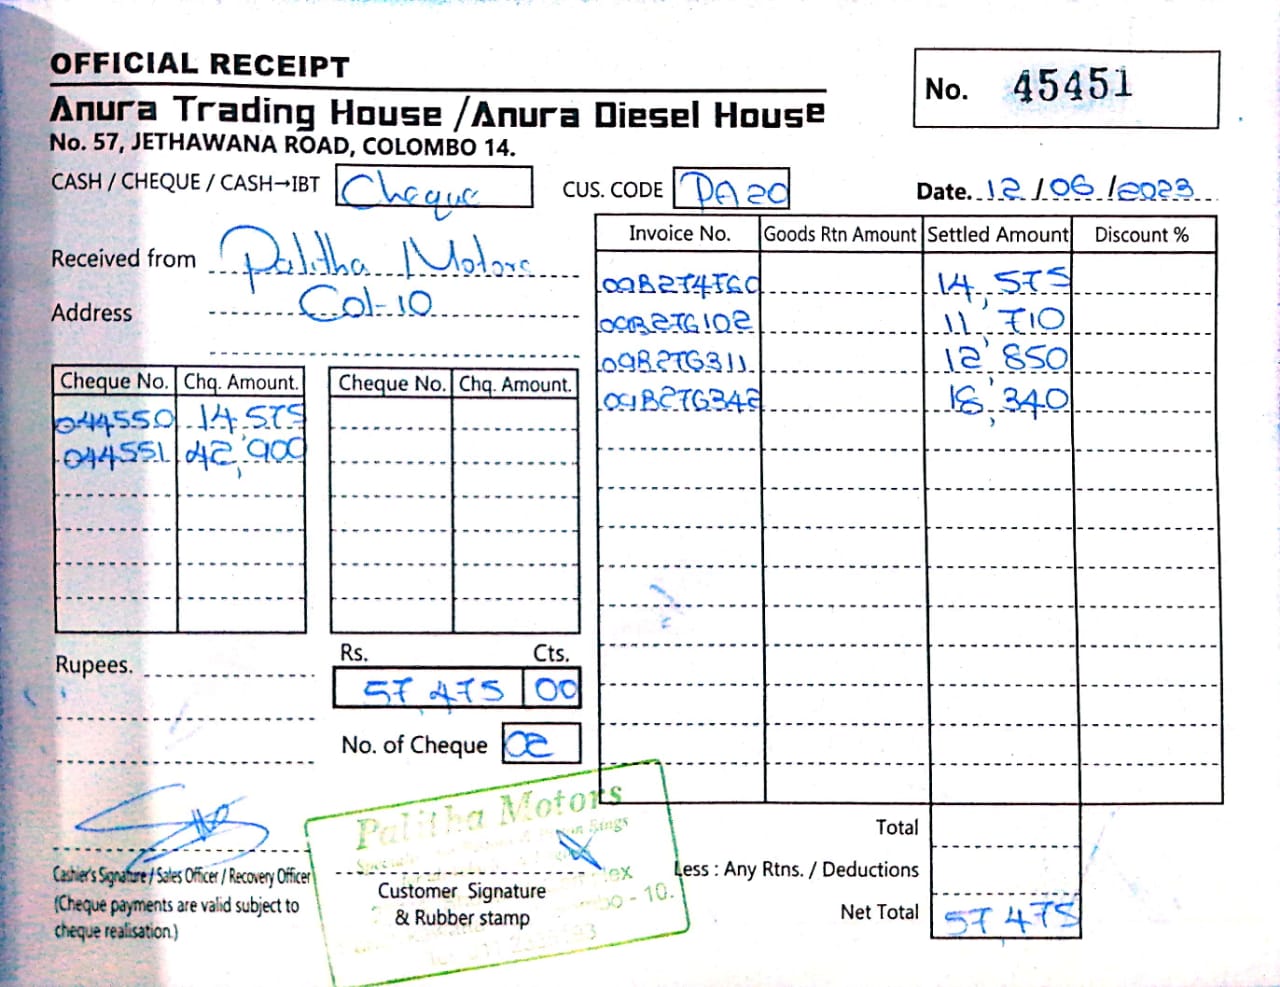 OFFICIAL RECEIPT
No. 45451
Anura Trading House / Anura Diesel House
No. 57, JETHAWANA ROAD, COLOMBO 14.
CASH / CHEQUE / CASH→IBT Cheque CUS. CODE PA20 Date. 12/06/2023
Received from Palitha Motors
Address Col-10
Invoice No. Goods Rtn Amount Settled Amount Discount %
14,575
11,710
12,850
18,340
Cheque No. Chq. Amount. Cheque No. Chq. Amount.
044550 14,575
044551 42,900
Rupees.
Rs. Cts.
57,475 00
No. of Cheque 02
Total
Less : Any Rtns. / Deductions
Net Total 57,475
Cashier's Signature / Sales Officer / Recovery Officer
(Cheque payments are valid subject to
cheque realisation.)
Palitha Motors
Customer Signature
& Rubber stamp